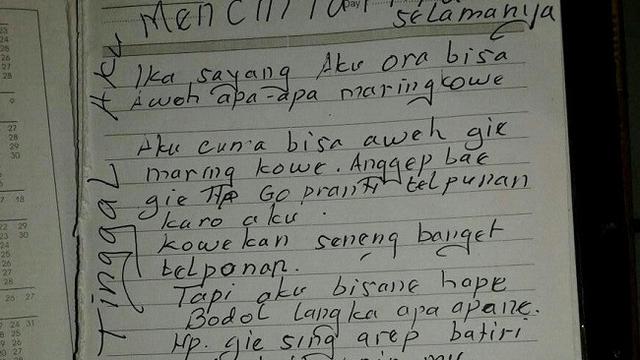 Mencintai
selamanya
Ika sayang Aku ora bisa
Aweh apa-apa maring kowe
Aku cuma bisa aweh gie
maring kowe. Anggep bae
gie Hp Go pranti telpunan
karo aku.
kowe kan seneng banget
telponan.
Tapi aku bisane hape
Bodol langka apa apane.
Hp. gie sing arep batiri
Tinggal Aku